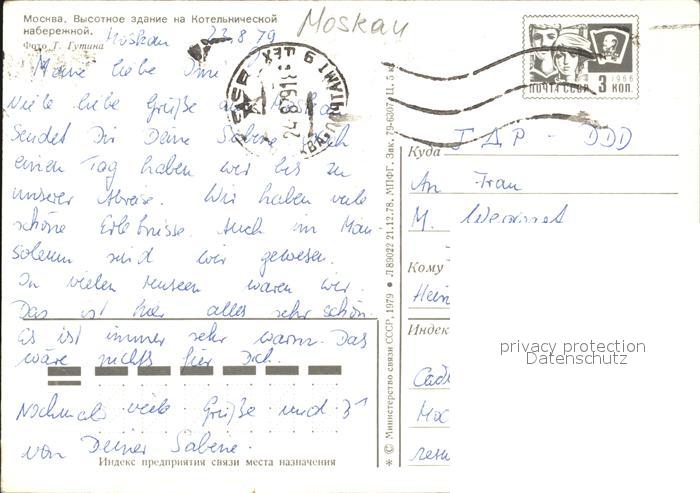 Москва. Высотное здание на Котельнической
набережной.
Фото Г. Гутина
Moskau
Moskau 23.8.79
Meine liebe
Viele liebe Grüße aus Moskau
sendet Dir Deine Sabine. Noch
einen Tag haben wir bis zu
unserer Abreise. Wir haben viele
schöne Erlebnisse. Auch im Mau-
soleum sind wir gewesen.
In vielen Museen waren wir.
Das ist hier alles sehr schön.
Es ist immer sehr warm. Das
wäre nichts für Dich.
Nochmals viele Grüße und
von Deiner Sabine.
Индекс предприятия связи места назначения
* © Министерство связи СССР, 1979 • Л 89022 21.12.78. МПФГ. Зак. 79-6307
24-8-79 18
ПОЧТА СССР
1966
3 КОП.
Куда ГДР - DDD
An Frau
M.
Кому
Индекс
privacy protection
Datenschutz